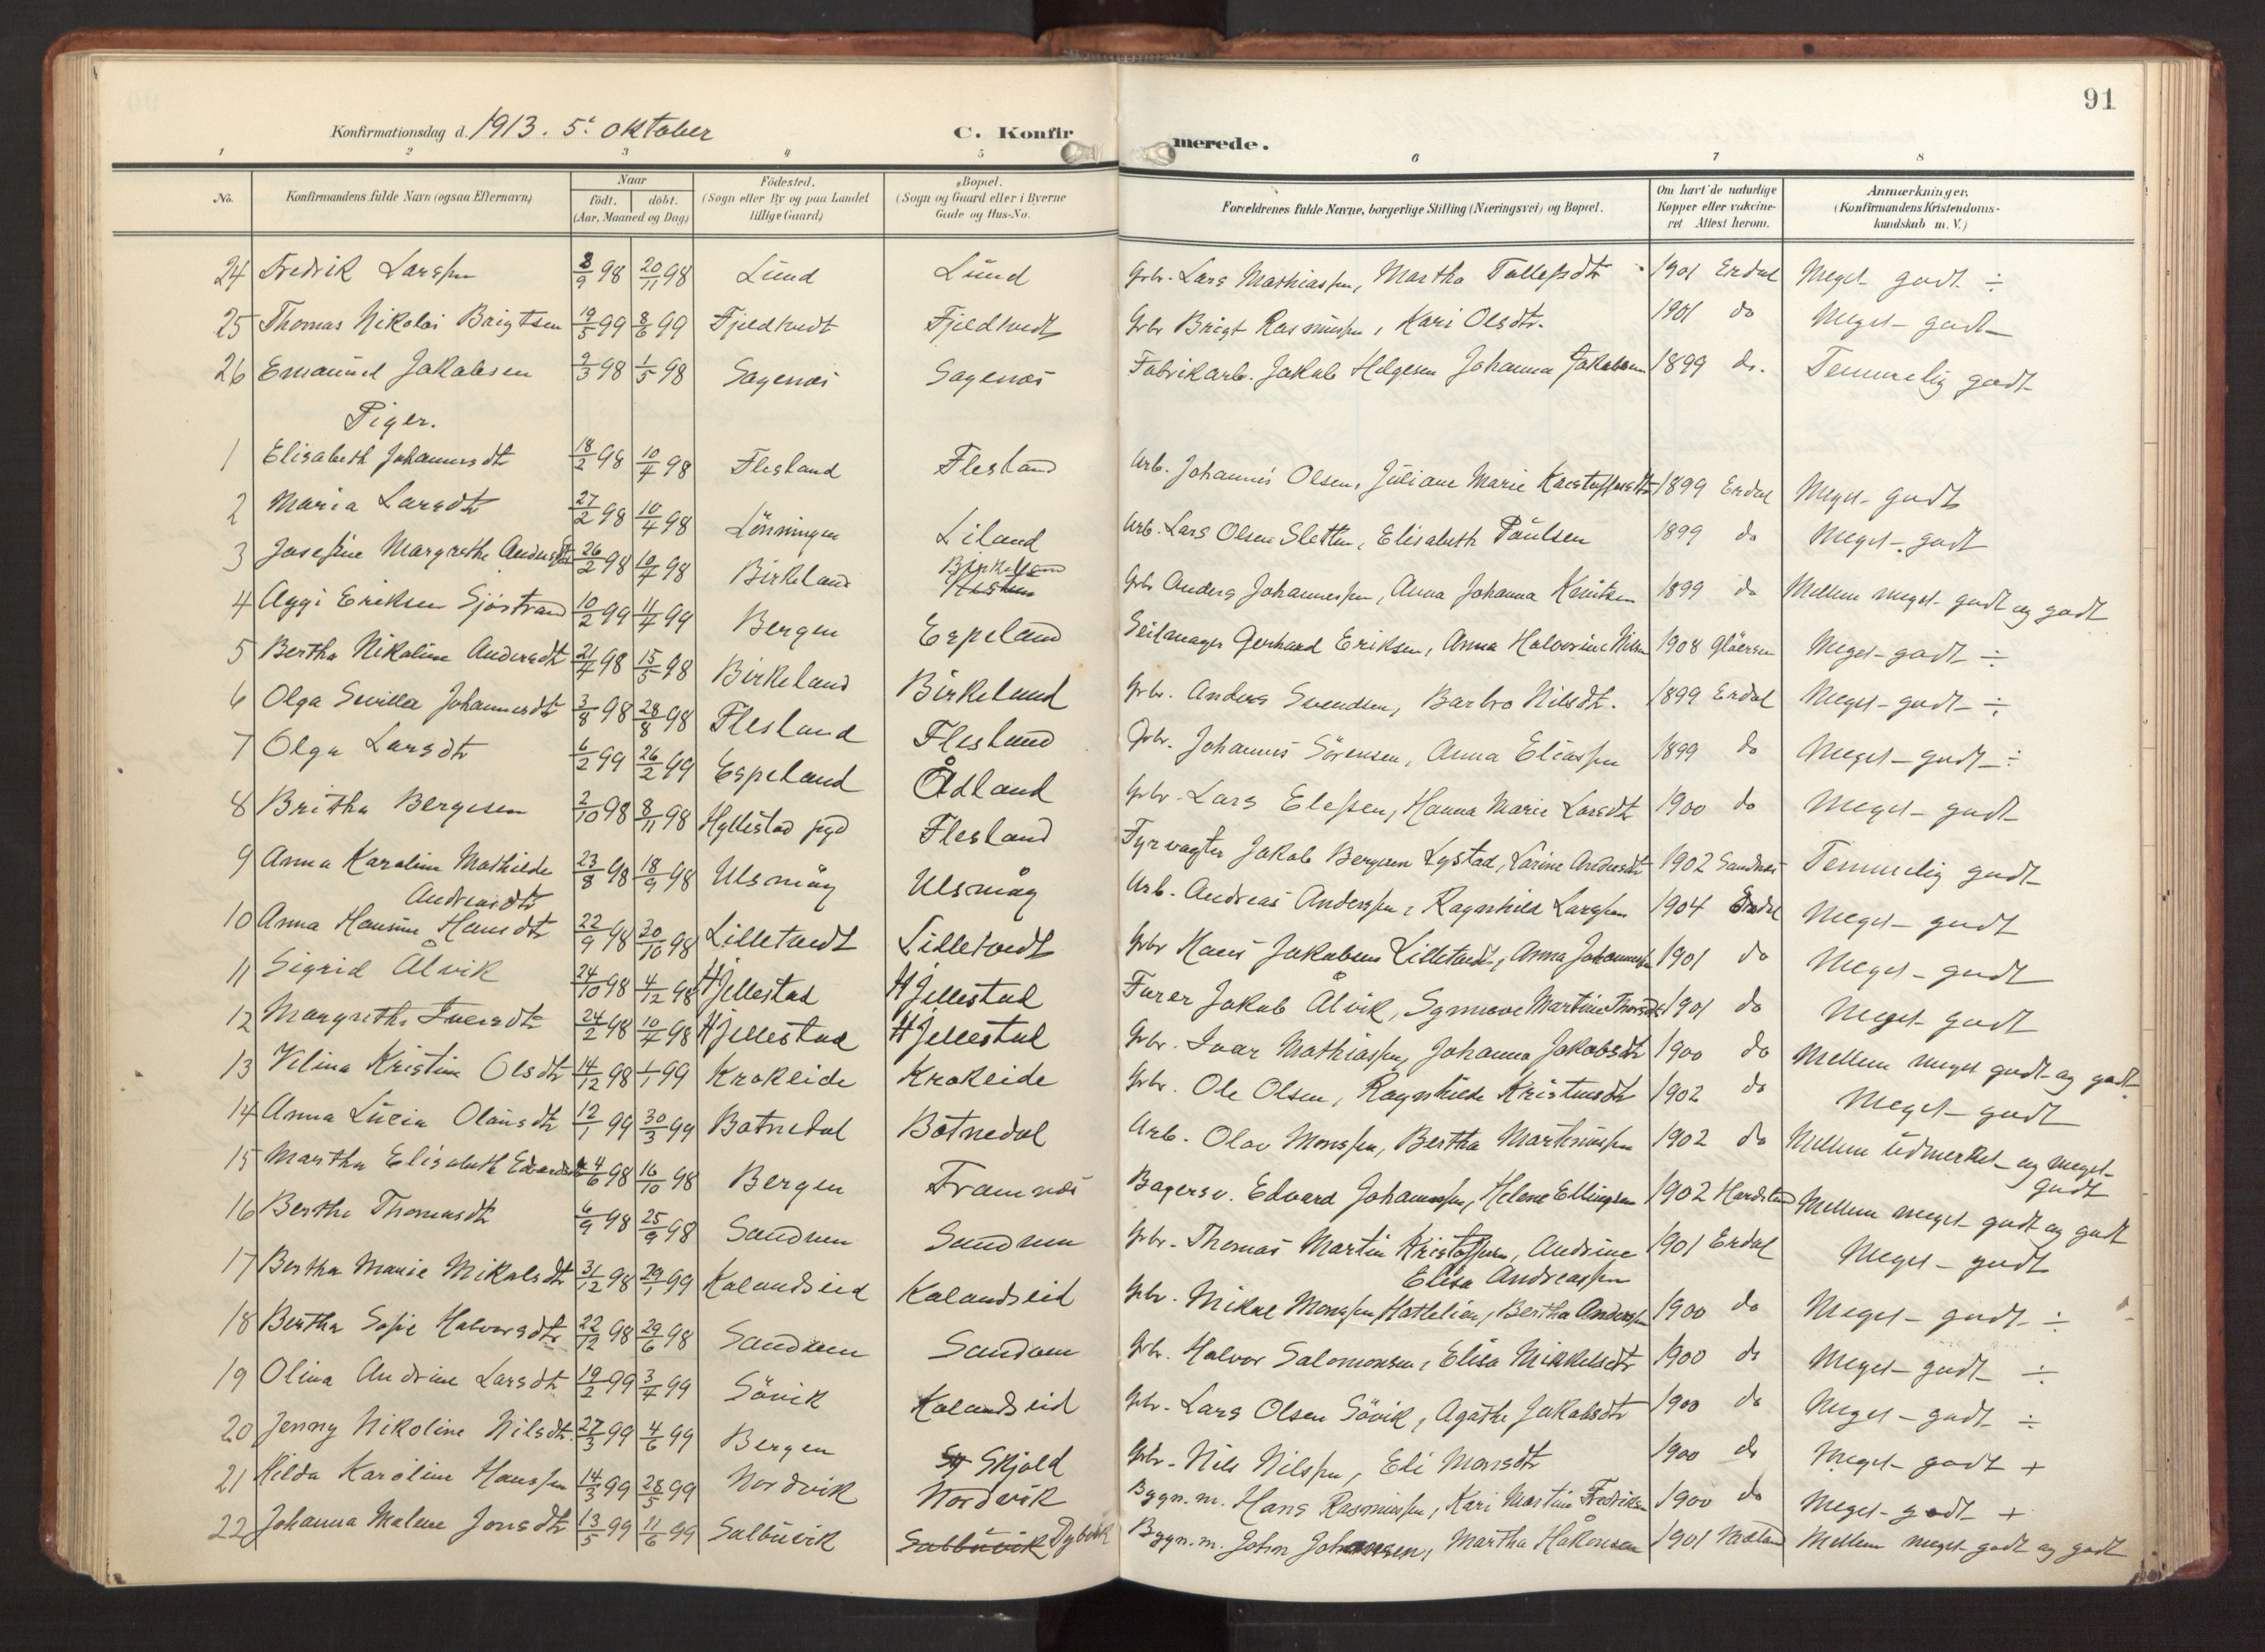 91
Konfirmationsdag d. 1913. 5te oktober C. Konfirmerede.
1 2 3 4 5 6 7 8
No. Konfirmandens fulde Navn (ogsaa Efternavn) Naar født. døbt. (Aar, Maaned og Dag) Fødested. (Sogn eller By og paa Landet tillige Gaard) Bopæl. (Sogn og Gaard eller i Byerne Gade og Hus-No. Forældrenes fulde Navne, borgerlige Stilling (Næringsvei) og Bopæl. Om havt de naturlige Kopper eller vakcineret Attest herom. Anmærkninger. (Konfirmandens Kristendomskundskab m. V.)
24 Fredrik Larssen 8/9 98 20/11 98 Lund Lund Gbr. Lars Mathiassen, Martha Tollefsdtr 1901 Erdal Meget godt ÷
25 Thomas Nikolai Brigtsen 19/5 99 8/6 99 Fjeldtvedt Fjeldtvedt Gbr Brigt Rasmussen, Kari Olsdtr. 1901 do Meget godt
26 Emanuel Jakobsen 9/3 98 1/5 98 Sagenæs Sagenæs Fabrikarb. Jakob Helgesen Johanna Jakobsen 1899 do. Temmelig godt
Piger.
1 Elisabeth Johannesdtr 18/2 98 10/4 98 Flesland Flesland Arb. Johannes Olsen, Juliane Marie Kristoffersdtr 1899 Erdal Meget godt
2 Maria Larsdtr 27/2 98 10/4 98 Lønningen Liland Arb. Lars Olsen Sletten, Elisabeth Paulsen 1899 do Meget godt
3 Josefine Margrethe Andersdtr 26/2 98 10/4 98 Birkeland Birkeland Gbr Anders Johannessen, Anna Johanna Knutsen 1899 do Mellem meget godt og godt
4 Aggi Eriksen Sjöstrand 10/2 99 11/4 99 Bergen Espeland Seilmager Gerhard Eriksen, Anna Halvorine Nilsen 1908 Gläersen Meget godt ÷
5 Bertha Nikoline Andersdtr 21/4 98 15/5 98 Birkeland Birkeland Gbr. Anders Svendsen, Barbro Nilsdtr. 1899 Erdal Meget godt ÷
6 Olga Sevilla Johannesdtr 3/8 98 28/8 98 Flesland Flesland Gbr. Johannes Sörensen, Anna Eliassen 1899 do Meget godt ÷
7 Olga Larsdtr 6/2 99 26/2 99 Espeland Ådland Gbr. Lars Elessen, Hanna Marie Larsdtr 1900 do Meget godt
8 Britha Bergesen 2/10 98 8/11 98 Hyllestad pgd Flesland Fyrvagter Jakob Bergesen Lystad, Larine Andersdtr 1902 Sandnæs Temmelig godt
9 Anna Karoline Mathilde 23/8 98 18/9 98 Ulsmåg Ulsmåg Arb. Andreas Anderssen, Ragnhild Larssen 1904 Erdal Meget godt
Andreasdtr
10 Anna Hansine Hansdtr 22/9 98 30/10 98 Lilletvedt Lilletvedt Gbr Hans Jakobsen Lilletvedt, Anna Johannessen 1901 do Meget godt
11 Sigrid Ålvik 24/10 98 4/12 98 Hjellestad Hjellestad Furer Jakob Ålvik, Synneve Martine Thorsdtr 1901 do Meget godt
12 Margrethe Iversdtr 24/2 98 10/4 98 Hjellestad Hjellestad Gbr. Ivar Mathiassen, Johanna Jakobsdtr 1900 do Mellem meget godt og godt
13 Velina Kristine Olsdtr 14/12 98 1/1 99 Krokeide Krokeide Gbr. Ole Olsen, Ragnhilde Kristensdtr 1902 do Meget godt
14 Anna Lucia Olausdtr 12/1 99 30/3 99 Botnedal Botnedal Arb. Olav Monssen, Bertha Martinussen 1902 do Mellem udmerket og meget
godt
15 Martha Elisabeth Edvardsdtr 4/6 98 16/10 98 Bergen Framnæs Bagersv. Edvard Johannessen, Helene Ellingsen 1902 Mellem meget godt og godt
16 Berthe Thomasdtr 6/9 98 25/9 98 Sandven Sandven Gbr. Thomas Martin Kristoffersen, Andrine 1901 Erdal Meget godt
Elisa Andreassen
17 Bertha Marie Mikalsdtr 31/12 98 29/1 99 Kalandseid Kalandseid Gbr. Mikal Monssen Hattelien, Bertha Anderssen 1900 do Meget godt ÷
18 Bertha Sofie Halvorsdtr 22/12 98 29/6 98 Sandven Sandven Gbr. Halvor Salomonsen, Elisa Mikkelsdtr 1900 do Meget godt ÷
19 Olina Andrine Larsdtr 19/2 99 3/4 99 Sövik Kalandseid Gbr. Lars Olsen Sövik, Agathe Jakobsdtr 1900 do Meget godt ÷
20 Jenny Nikoline Nilsdtr. 27/3 99 4/6 99 Bergen Skjold Gbr. Nils Nilssen, Eli Monsdtr 1900 do Meget godt +
21 Hilda Karoline Hanssen 14/3 99 28/5 99 Nordvik Nordvik Bygn.m. Hans Rasmussen, Kari Martine Fredriksen 1900 do Meget godt +
22 Johanna Malene Jonsdtr 13/5 99 11/6 99 Salbuvik Salbuvik Dybvik Bygn.m. John Johannesen, Martha Håkonsen 1901 Mellem meget godt og godt